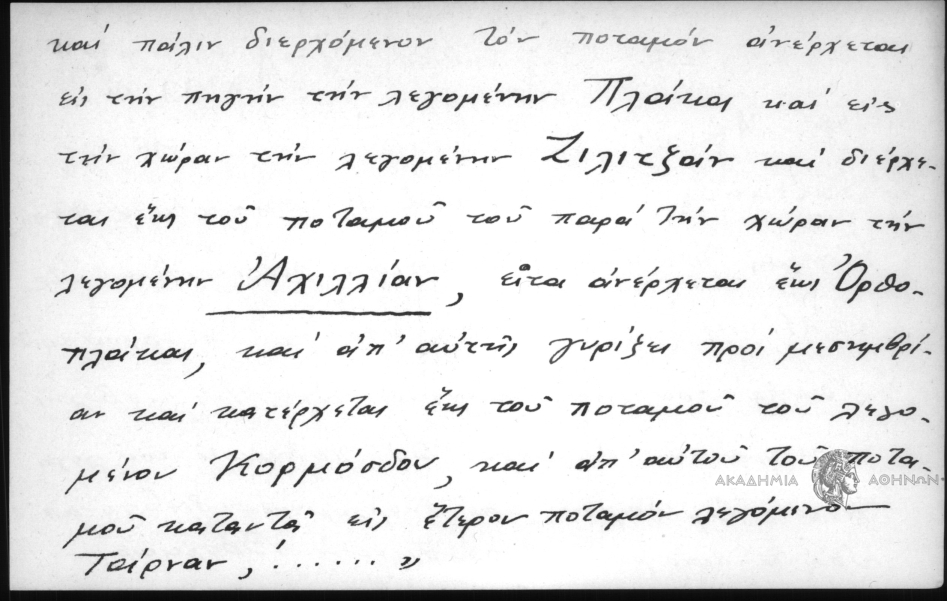 καί πάλιν διερχόμενον τόν ποταμόν ἀνέρχεται
εἰς τήν πηγήν τήν λεγομένην Πλάκαι καί εἰς
τήν χώραν τήν λεγομένην Ζιλιτζάν καί διέρχε-
ται ἕως τοῦ ποταμοῦ τοῦ παρά τήν χώραν τήν
λεγομένην Ἀχιλλίαν, εἶτα ἀνέρχεται ἕως Ὀρθο-
πλάκας, καί ἀπ' αὐτῆς γυρίζει πρός μεσημβρί-
αν καί κατέρχεται ἕως τοῦ ποταμοῦ τοῦ λεγο-
μένου Κορμόσδου, καί ἀπ' αὐτοῦ τοῦ ποτα-
μοῦ καταντᾶ εἰς ἕτερον ποταμόν λεγόμενον
Τσίρναν, ....... "
ΑΚΑΔΗΜΙΑ ΑΘΗΝΩΝ